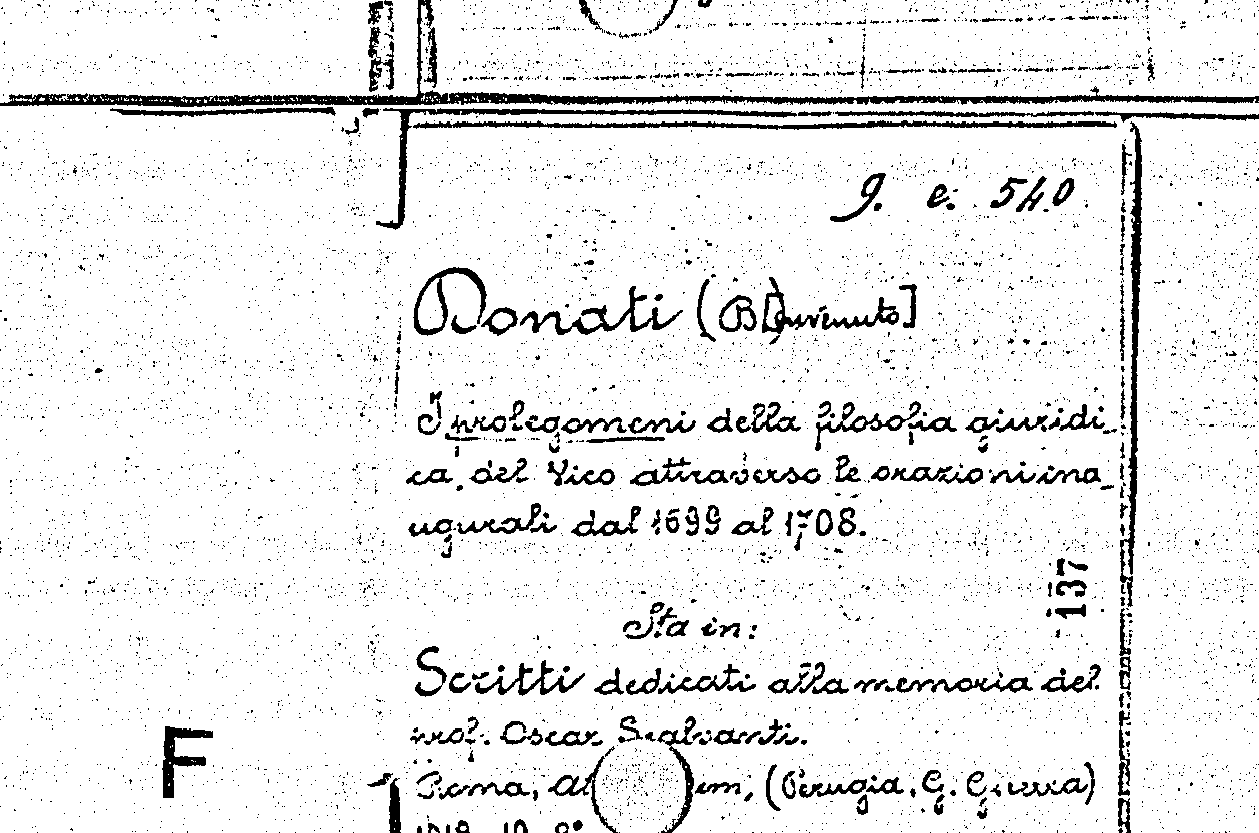 g. e. 540
Donati (B[envenuto]
I prolegomeni della filosofia giuridi_
ca del Vico attraverso le orazioni ina_
ugurali dal 1699 al 1708.
137
Sta in:
Scritti dedicati alla memoria del
prof. Oscar Scalvanti.
F
Roma, (Perugia, G. Guerra)